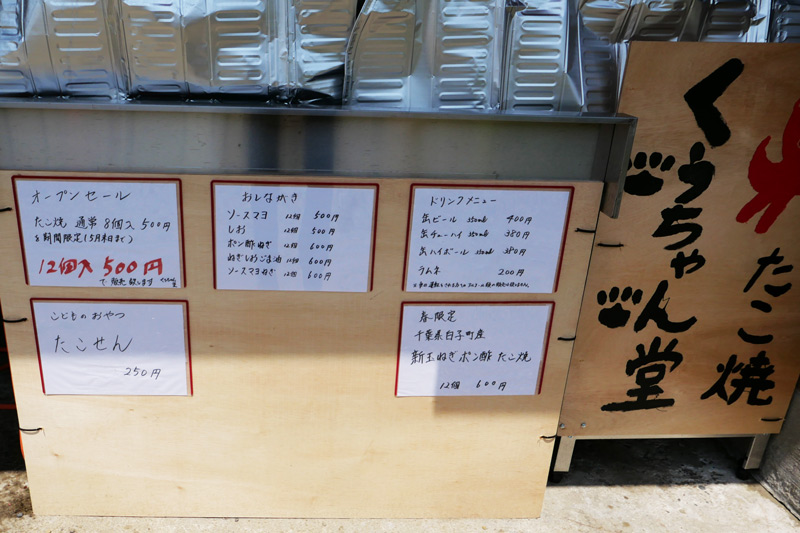 オープンセール
たこ焼 通常8個入 500円
を期間限定(5月末日まで)
12個入 500円
で販売致します
おしながき
ソースマヨ 12個 500円
しお 12個 500円
ポン酢ねぎ 12個 600円
ねぎしおごま油 12個 600円
ソースマヨねぎ 12個 600円
ドリンクメニュー
缶ビール 350ml 400円
缶チューハイ 350ml 350円
缶ハイボール 350ml 350円
ラムネ 200円
こどものおやつ
たこせん
250円
春限定
千葉県白子町産
新玉ねぎポン酢たこ焼
12個 600円
たこ焼
くぅちゃん堂